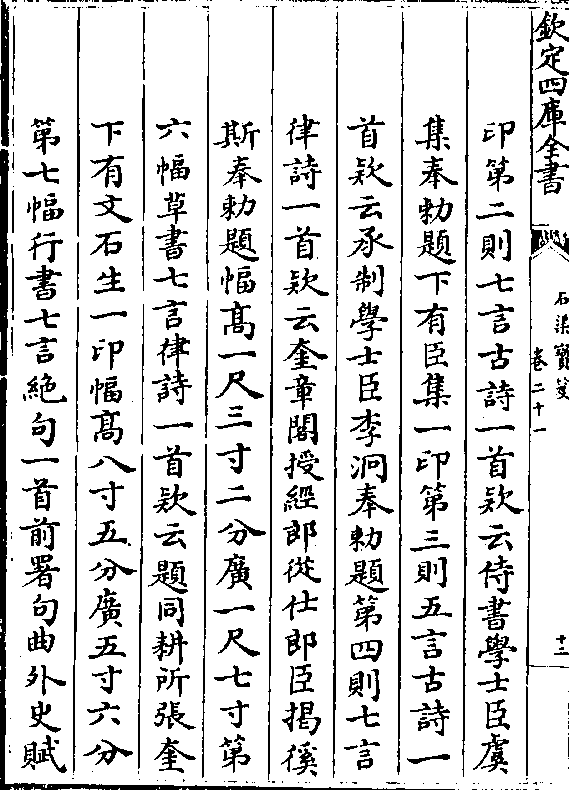 欽定四庫全書
石渠寶笈
卷二十一
十三
印第二則七言古詩一首欵云侍書學士臣虞
集奉勅題下有臣集一印第三則五言古詩一
首欵云承制學士臣李泂奉勅題第四則七言
律詩一首欵云奎章閣授經郎從仕郎臣揭傒
斯奉勅題幅髙一尺三寸二分廣一尺七寸第
六幅草書七言律詩一首欵云題同耕所張奎
下有文石生一印幅髙八寸五分廣五寸六分
第七幅行書七言絶句一首前署句曲外史賦